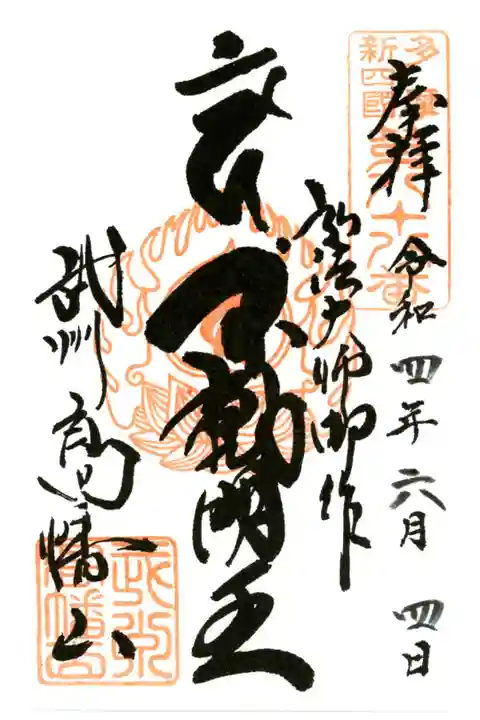 多摩
新四國
八十八番
奉拝 令和四年六月四日
弘法大師御作
不動明王
武州 高幡山